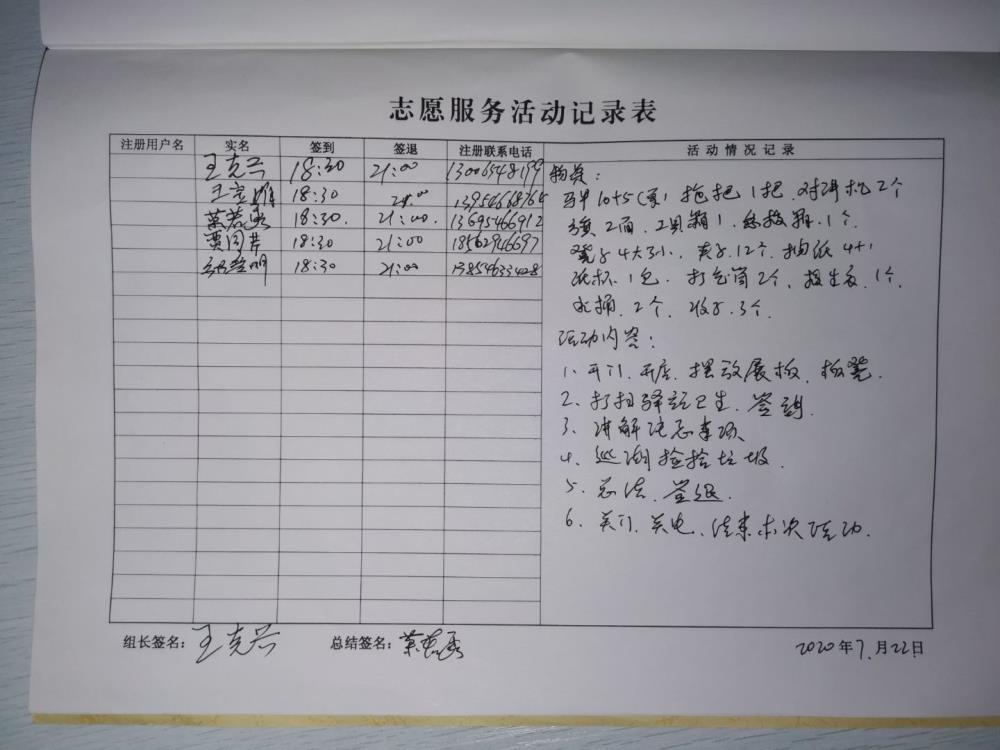 志愿服务活动记录表
注册用户名 实名 签到 签退 注册联系电话 活动情况记录
王克兴 18:30 21:00 13006548199
王 18:30 21:00 13954668764
18:30. 21:00. 13695466912
贾同芹 18:30 21:00 18562946697
18:30 21:00 13854633428
物资:
马甲10+5(雾) 拖把1把 对讲机2个
旗2面 工具箱1 急救箱.1个
凳子4大3小 夹子.12个 抽纸4+1
纸杯.1包. 打气筒2个、救生衣.1个.
水桶.2个. 3个.
活动内容:
1、开门.开店.摆放展板.板凳.
2、打扫驿站卫生.签到.
3、讲解注意事项
4、巡湖捡拾垃圾.
5、总结.签退.
6、关门.关电、结束本次活动.
组长签名:王克兴 总结签名:
2020年7月22日